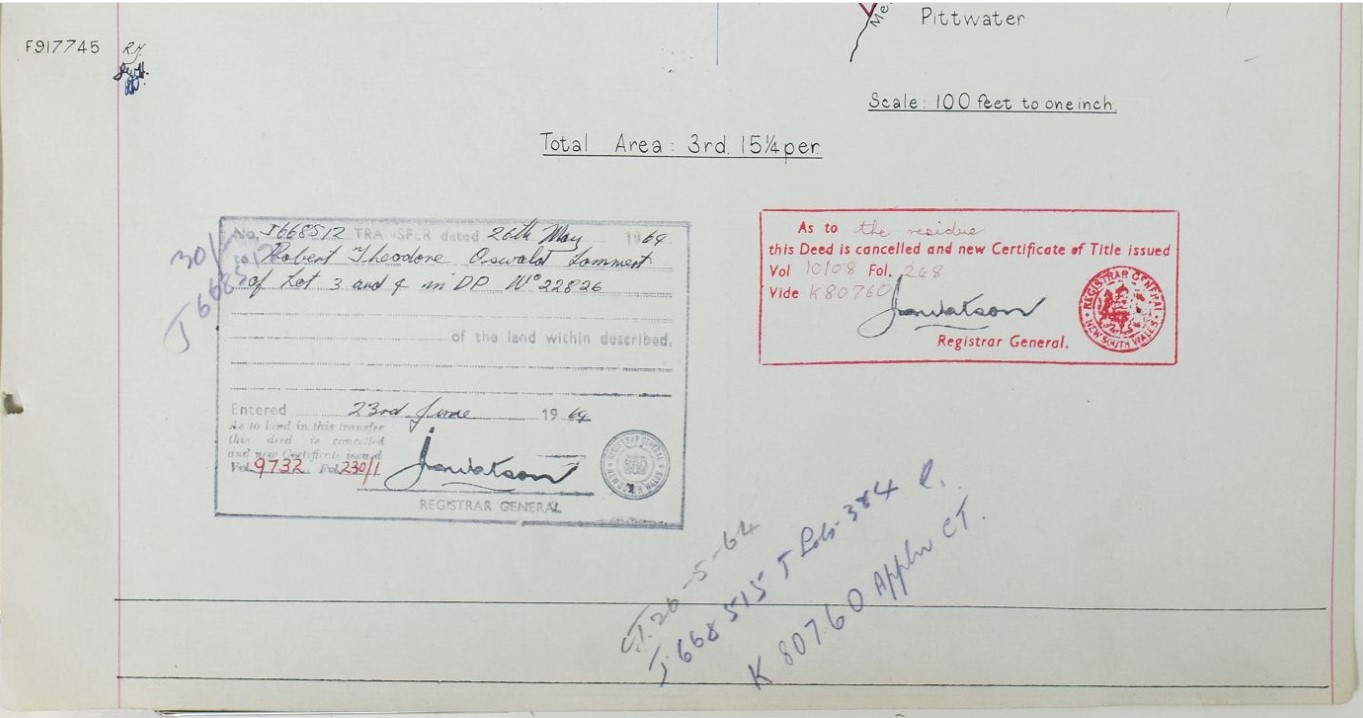 Pittwater
F917745 R.H.
Scale: 100 feet to one inch.
Total Area: 3rd. 15¼ per.
No. J668512 TRANSFER dated 26th May 1964
to Robert Theodore Oswald Lommert
of Lot 3 and 4 in DP Nº 22826
of the land within described.
Entered 23rd June 1964
As to land in this transfer
this deed is cancelled
and new Certificate issued
Vol. 9732 Fol. 230/1
REGISTRAR GENERAL
As to the residue
this Deed is cancelled and new Certificate of Title issued
Vol 10108 Fol. 268
Vide K80760
Registrar General.
REGISTRAR GENERAL
NEW SOUTH WALES
C.T. 26-5-64
J.668515 T Lots 3&4
K 80760 Appln CT.